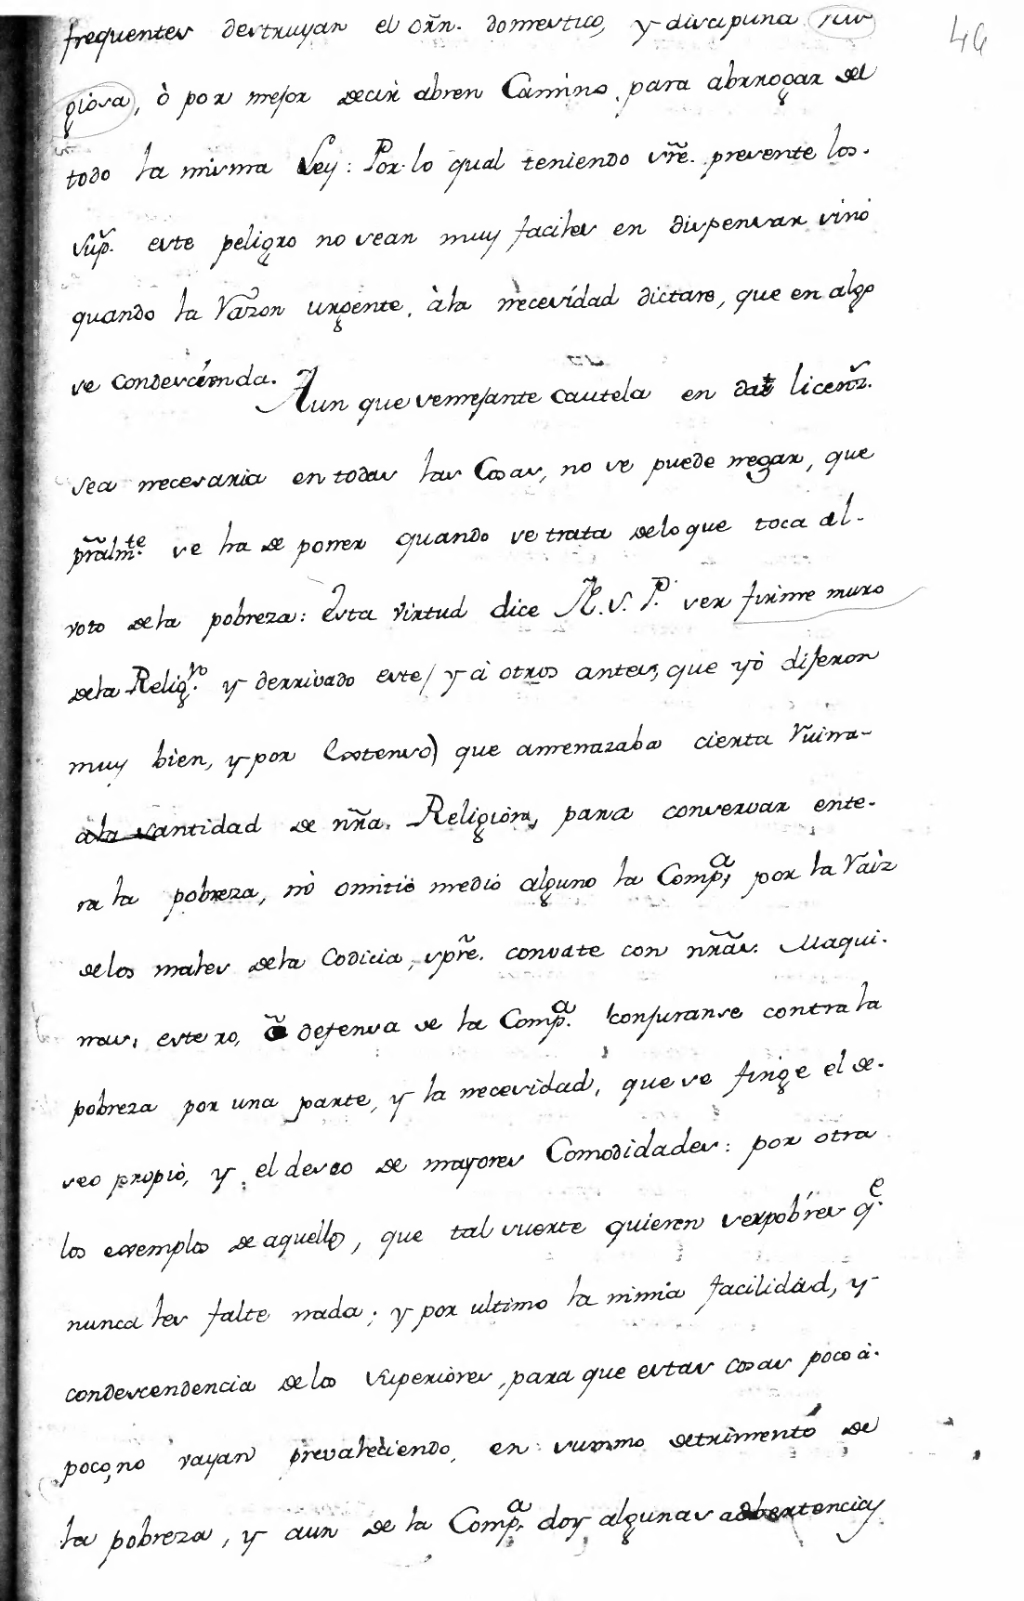 46
frequentes destruyan el orñ. domestico, y disciplina
giosa, ò por mejor decir abren Camino, para abrrogar del
todo la misma Ley: Por lo qual teniendo sr̃e. presente los.
Sup̃. este peligro no sean muy faciles en dispensar sinò
quando la Razon urgente, àla necesidad dictare, que en algo
se condescienda.
Aun que semejante cautela en dar licenz̃.
sea necesaria en todas las Cosas, no se puede negar, que
pr̃alm̃te. se ha de poner quando se trata delo que toca al-
voto dela pobreza: Esta virtud dice N. S. P. ser firme muro
dela Relig.ⁿ y derrivado este/ y à otros antes, que yò dijeron
muy bien, y por extenso) que amenazaba cierta Ruina-
ala santidad de nr̃a. Religion, para conservar ente-
ra la pobreza, nò omitiò mediò alguno la Comp.ª, por la Raiz
delos males dela Codicia, spr̃e. convate con nr̃as. Maqui-
nas, esto no, õ defensa de la Comp.ª Conjuranse contra la
pobreza por una parte, y la necesidad, que se finge el de-
seo propiò, y el deseo de mayores Comodidades: por otra
los exemplos de aquellos, que tal suerte quieren serpobres q.ᵉ
nunca les falte nada; y por ultimo la nimia facilidad, y
condescendencia delos Superiores, para que estas cosas poco à-
poco, no vayan prevaleciendo, en summo detrimento de
la pobreza, y aun de la Comp.ª doy algunas adbertencias